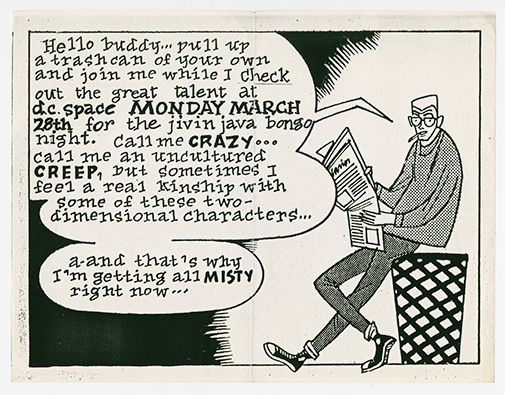 Hello buddy... pull up
a trashcan of your own
and join me while I check
out the great talent at
d.c. space MONDAY MARCH
28th for the jivin java bongo
night. Call me CRAZY...
call me an uncultured
CREEP, but sometimes I
feel a real kinship with
some of these two-
dimensional characters...
a-and that's why
I'm getting all MISTY
right now...